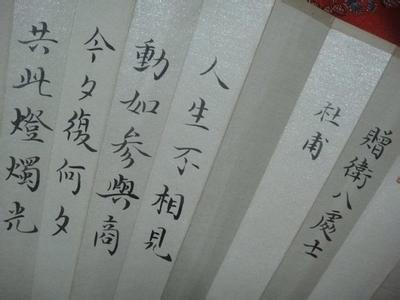 贈衛八處士
杜甫
人生不相見
動如參與商
今夕復何夕
共此燈燭光